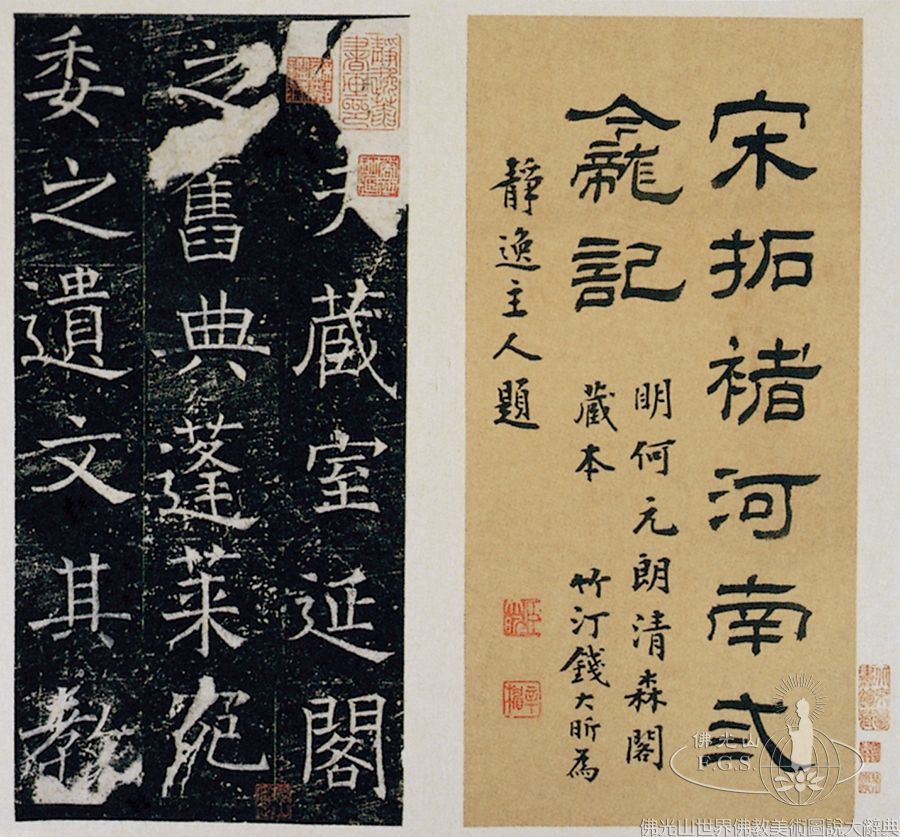 宋拓褚河南弎
龕記
明何元朗清森閣
藏本 竹汀錢大昕為
靜逸主人題
夫藏室延閣
之舊典蓬萊宛
委之遺文其教
佛光山
F.G.S.
佛光山世界佛教美術圖說大辭典